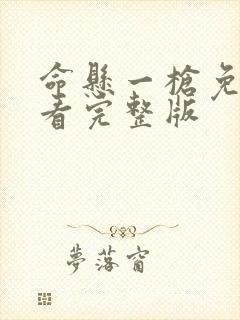 命懸一槍免
看完整版
夢落窗